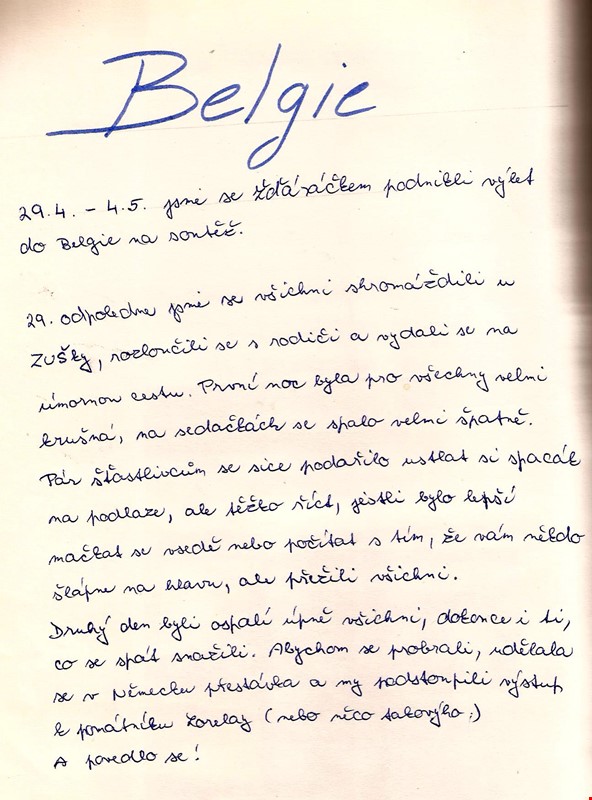 Belgie
29.4. - 4.5. jsme se Žďáráčkem podnikli výlet
do Belgie na soutěž.
29. odpoledne jsme se všichni shromáždili u
ZUŠky, rozloučili se s rodiči a vydali se na
úmornou cestu. První noc byla pro všechny velmi
krušná, na sedačkách se spalo velmi špatně.
Pár šťastlivcům se sice podařilo ustlat si spacák
na podlaze, ale těžko říct, jestli bylo lepší
mačkat se vsedě nebo počítat s tím, že vám někdo
šlápne na hlavu, ale přežili všichni.
Druhý den byli ospalí úpně všichni, dokonce i ti,
co se spát snažili. Abychom se probrali, udělala
se v Německu přestávka a my podstoupili výstup
k památníku Lorelay (nebo něco takovýho ;)
A povedlo se!